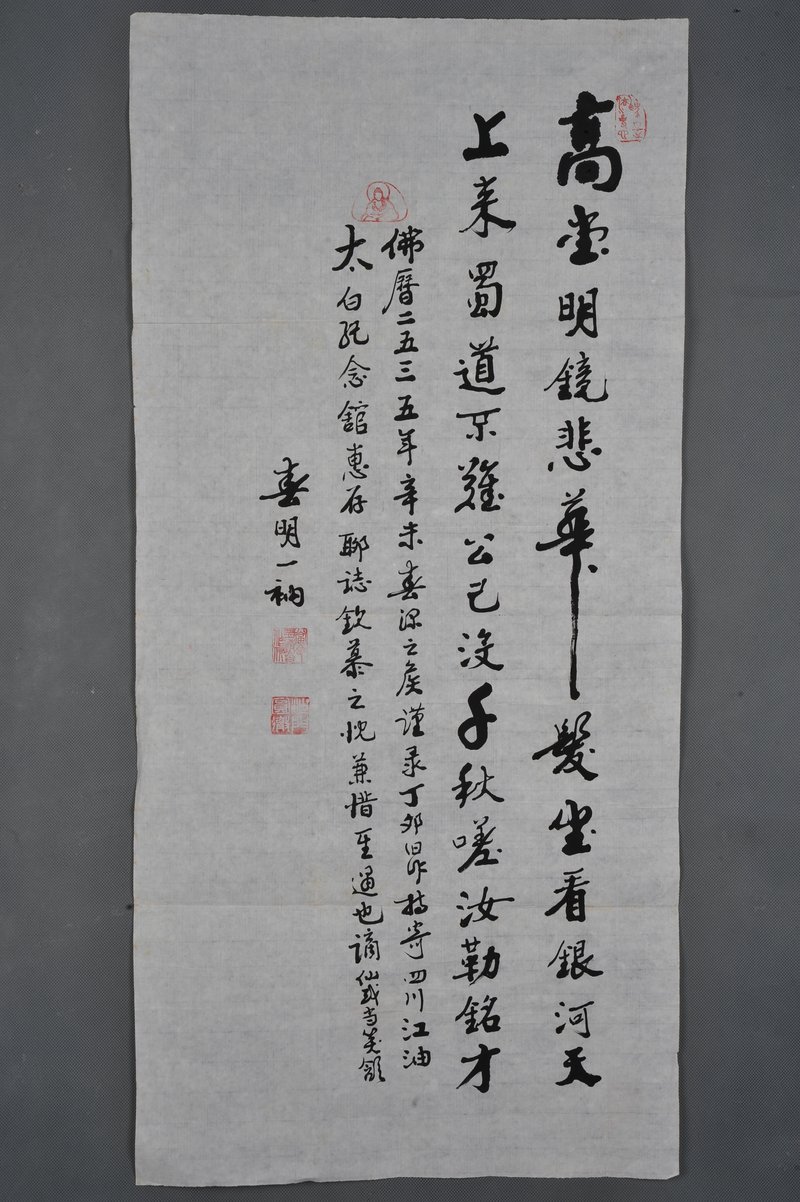 高堂明鏡悲華髮坐看銀河天
上来蜀道不難公已没千秋嗟汝勒銘才
佛曆二五三五年辛未春深之矣謹录丁卯旧作持寄四川江油
太白紀念舘惠存聊誌欽慕之忱兼惜至遇也謫仙或当笑頷
春明一衲